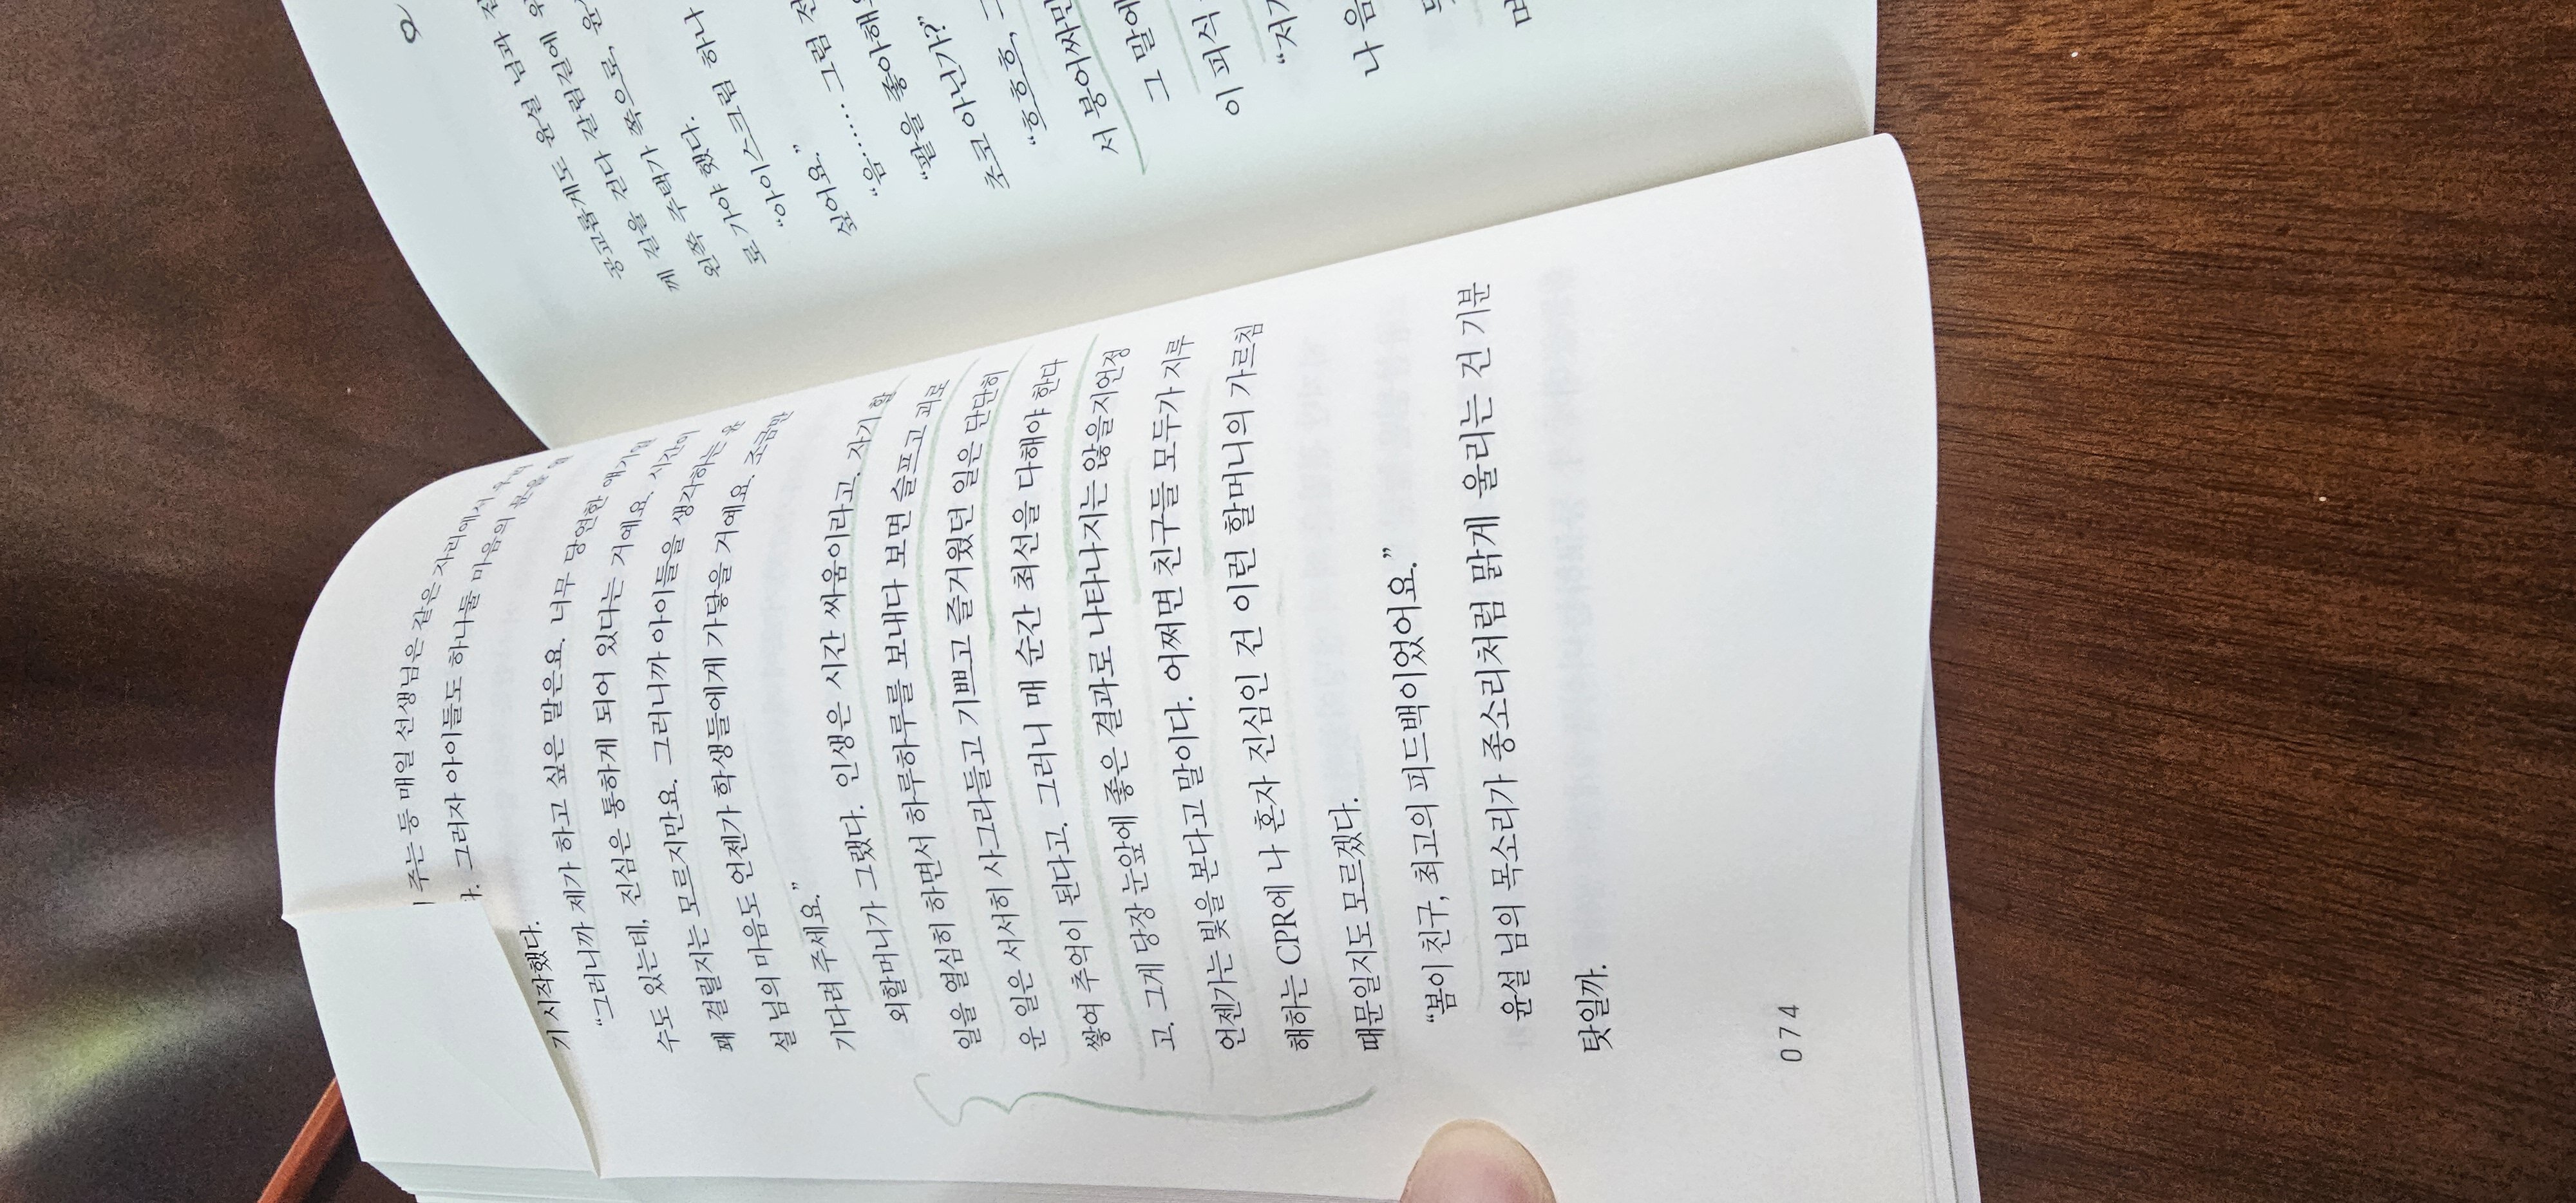 주는 등 매일 선생님은 같은 자리에서
그러자 아이들도 하나둘 마음의
기 시작했다.
“그러니까 제가 하고 싶은 말은요. 너무 당연한 얘기일
수도 있는데, 진심은 통하게 되어 있다는 거예요. 시간이
꽤 걸릴지는 모르지만요. 그러니까 아이들을 생각하는 윤
설 님의 마음도 언젠가 학생들에게 가닿을 거예요. 조금만
기다려 주세요.”
외할머니가 그랬다. 인생은 시간 싸움이라고. 자기 할
일을 열심히 하면서 하루하루를 보내다 보면 슬프고 괴로
운 일은 서서히 사그라들고 기쁘고 즐거웠던 일은 단단히
쌓여 추억이 된다고. 그러니 매 순간 최선을 다해야 한다
고. 그게 당장 눈앞에 좋은 결과로 나타나지는 않을지언정
언젠가는 빛을 본다고 말이다. 어쩌면 친구들 모두가 지루
해하는 CPR에 나 혼자 진심인 건 이런 할머니의 가르침
때문일지도 모르겠다.
“봄이 친구, 최고의 피드백이었어요.”
윤설 님의 목소리가 종소리처럼 맑게 울리는 건 기분
탓일까.
074
공교롭게도 윤설 님과
께 길을 걷다 갈림길에
왼쪽 주택가 쪽으로, 윤
로 가야 했다.
“아이스크림 하나
싶어요.”
“음……. 그럼
“팥을 좋아해
초코 아닌가?”
“흐흐흐,
서 붕어싸만
그 말에
이 피식
“저기
나 음